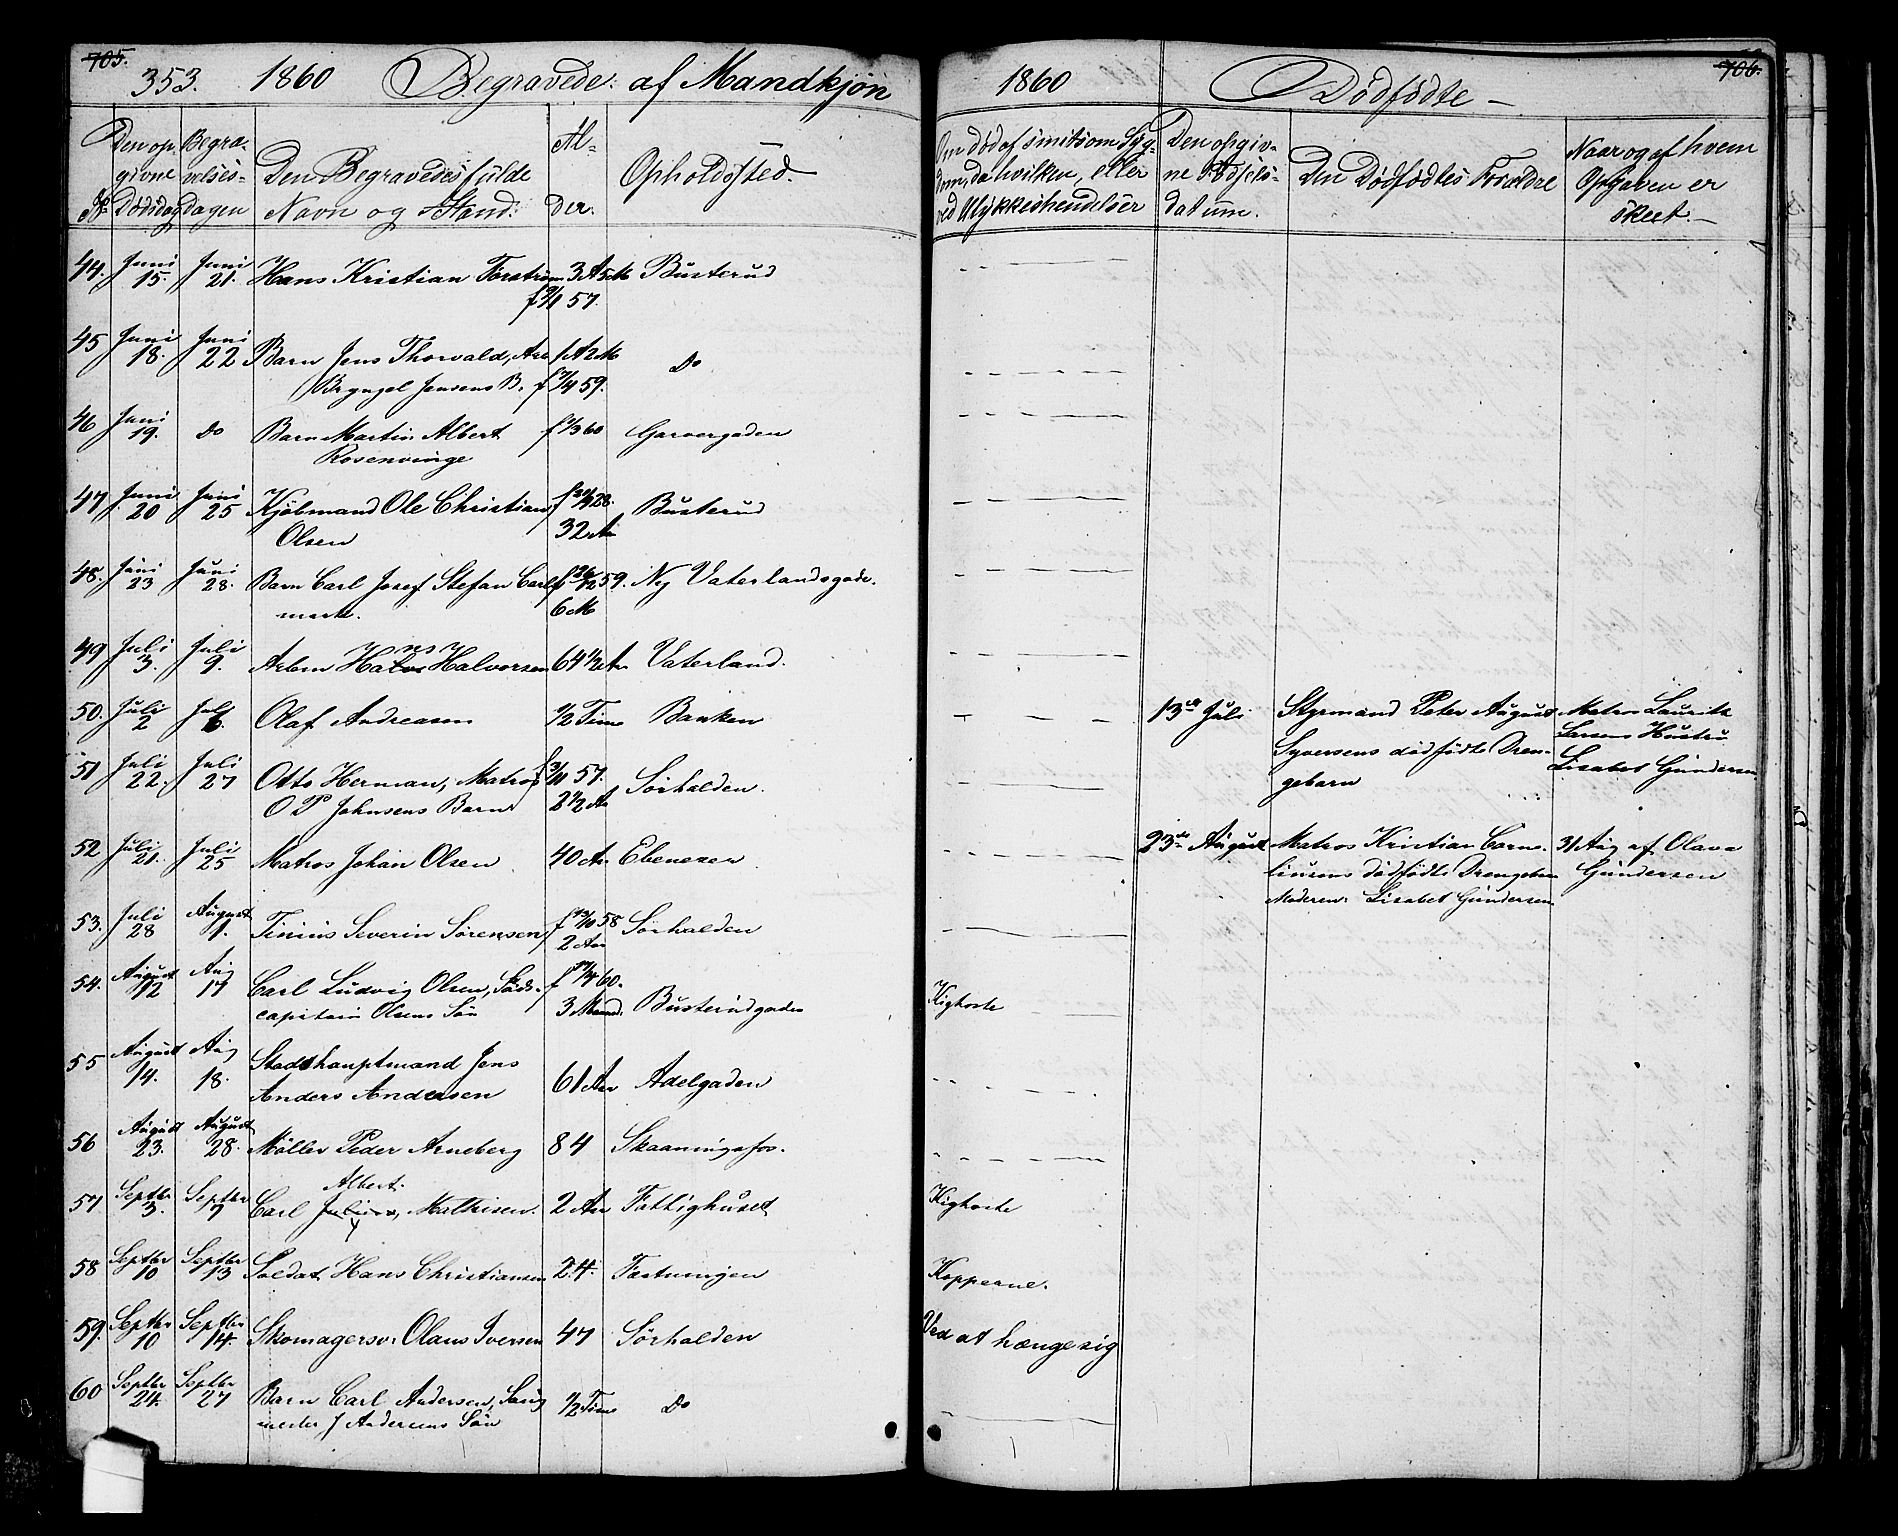 705.
353. 1860 Begravede: af Mandkjøn
Den op- givne Dødsdag
Begra- velses- dagen
Den Begravedes fulde Navn og Stand:
Al- der.
Opholdssted.
No
44. Juni 15. Juni 21. Hans Kristian Torstrøm 3 Ar 5 M Busterud
f 9/1 57.
45 Juni 18. Juni 22 Barn Jens Thorvald, Arb 1 Ar 2 M Do
Bryngel Jensens B. f 7/4 59.
46 Juni 19. Do Barn Martin Albert f 5/3 60 Garvergaden
Rosenvinge
47 Juni 20 Juni 25 Kjøbmand Ole Christian f 28. Busterud
Olsen 32 Ar
48. Juni 23 Juni 28. Barn Carl Josef Stefan Carl f 26/12 59. Ny Vaterlandsgade.
mark. 6 M
49 Juli 3. Juli 9. Arbm Hans Halvorsen 64 1/2 Ar Vaterland.
50. Juli 2 Juli 6. Olaf Andreasen 1/2 Time Banken
51 Juli 22. Juli 27 Otto Herman, Matros f 57. Sørhalden.
O P Johnsens Barn 2 1/2 Ar
52 Juli 21. Juli 25 Matros Johan Olsen 40 Ar Ebenezer
53. Juli 28 August 1. Tinius Severin Sørensen f 13/10 58 Sørhalden
2 Ar
54. August 12 Aug 17 Carl Ludvig Olsen, Sø- f 17/4 60.
capitain Olsens Søn 3 Maand. Busterudgaden
55 August 14. Aug 18. Stadshauptmand Jens
Anders Andersen 61 Ar Adelgaden
56 August 23. August 28. Møller Peder Arneberg 84 Skaaningsfos.
Albert.
57 Septbr 3. Septbr 7 Carl Julius, Mathisen. 2 Ar Fattighuset
58 Septbr 10 Septbr 13 Soldat Hans Christiansen 24. Fæstningen
59. Septbr 10 Septbr 14. Skomagersv. Olaus Iversen 47 Sørhalden
60 Septbr 24. Septbr 27 Barn Carl Andersen, Sang 1/2 Time Do
mester J Andersens Søn
706.
1860 Dødfødte
Om død af smitsom Syg- dom, da hvilken, eller ved Ulykkeshendelser
Den opgiv- ne Fødsels- datum.
Den Dødfødtes Forældre
Naar og af hvem Opgaven er skeet.
13de Juli Styrmand Peter August Matros Lauritz
Syversens dødfødte Dren- Larsens Hustru
gebarn Lisabet Gundersen
23de August Matros Kristian Corne- 31 Aug af Olava
liusens dødfødte Drengebarn Gundersen
Moderen: Lisabet Gundersen
Kighoste
Kighoste
Kopperne.
Ved at hænge sig